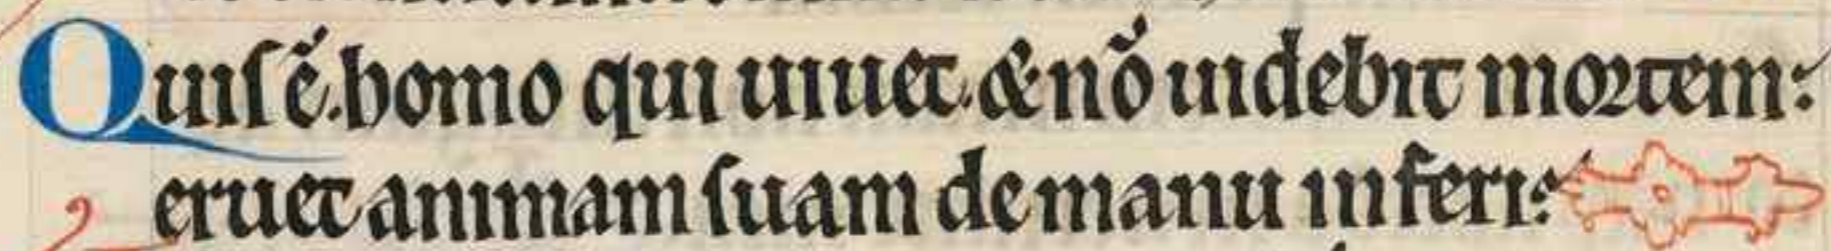 Quis ē. homo qui uiuet. & nō uidebit mortem:
eruet animam suam de manu inferi: